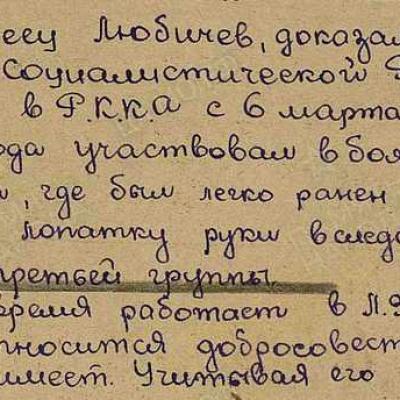 еец Любичев, доказал
социалистической
в Р.К.К.А с 6 марта
ода участвовал в боя
, где был легко ранен
лопатку руки вследс
третьей группы.
время работает в
тносится добросовест
имеет. Учитывая его